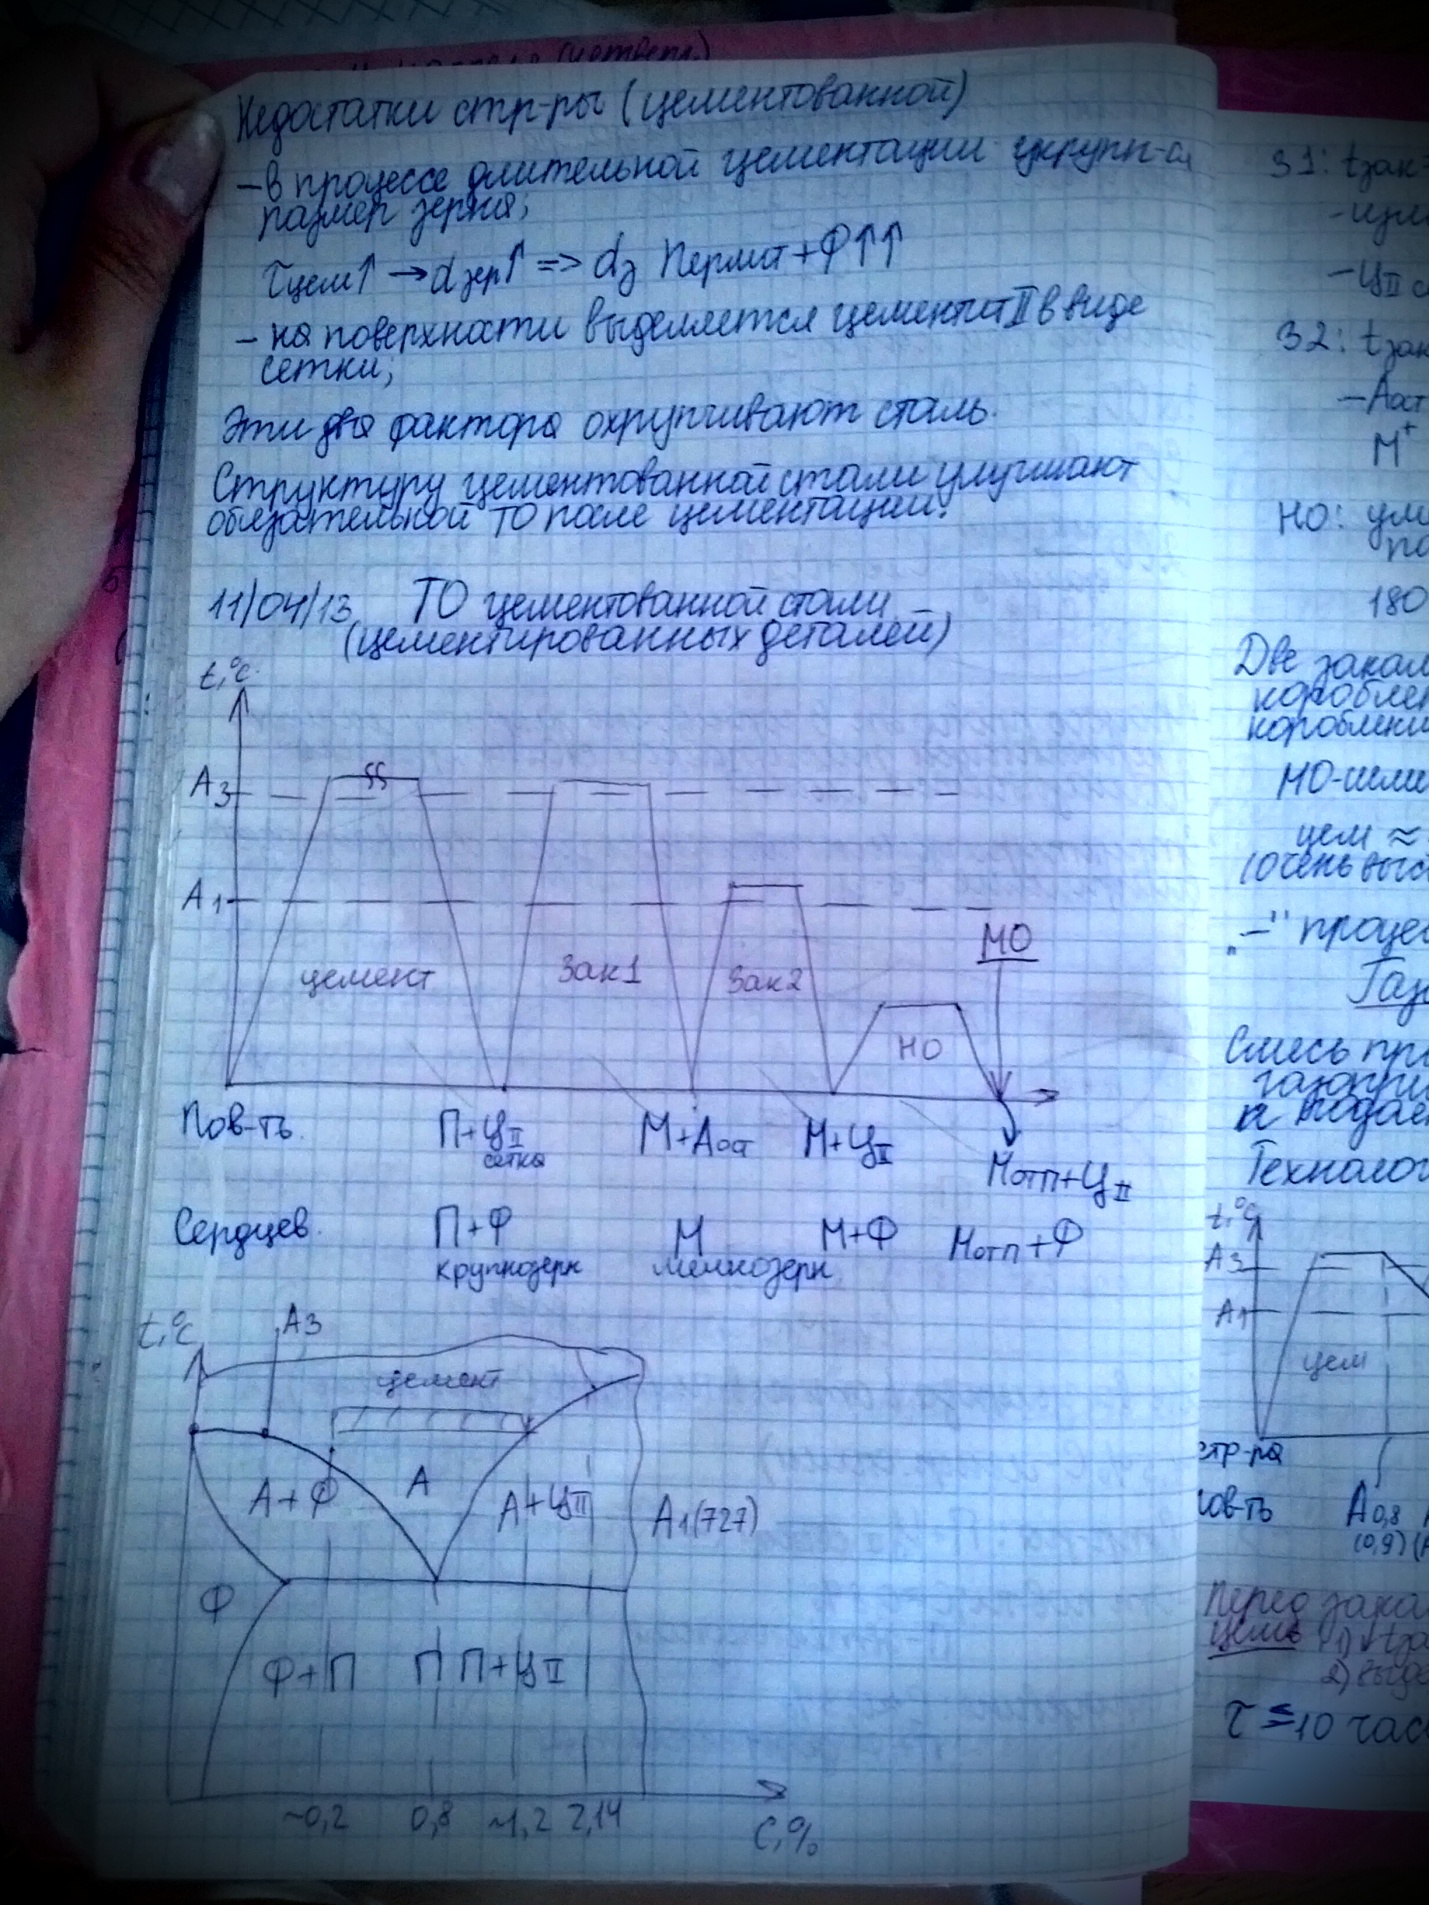 Недостатки стр-ры (цементованной)
– в процессе длительной цементации укрупн-ся
размер зерна;
τцем↑ → dзер↑ => dз Пермат + Ф↑↑
– на поверхности выделяется цементит II в виде
сетки;
Эти два фактора охрупчивают сталь.
Структуру цементованной стали улучшают
обязательной ТО после цементации.
11/04/13. ТО цементованной стали
(цементированных деталей)
t,°C
A3
A1
цемент
Зак1
Зак2
НО
МО
Пов-ть. П+ЦII М+Аост М+ЦII
сетка
Мотп+ЦII
Сердцев. П+Ф М М+Ф Мотп+Ф
крупнозерн мелкозерн
t,°C
A3
цемент
А+Ф А А+ЦII A1(727)
Ф
Ф+П П П+ЦII
~0,2 0,8 ~1,2 2,14 C,%
31: tзак
– изм
– ЦII
32: tзак
– Аост
М+
НО:
180
Две закал
короблен
короблени
МО-
цем ≈
(очень выс
„–" процес
Газ
Смесь пр
газопри
и подае
Технолог
t,°C
A3
A1
цем
стр-ра
пов-ть А0,8
(0,9)
Перед зака
1)
2) выде
τ ≤ 10 час